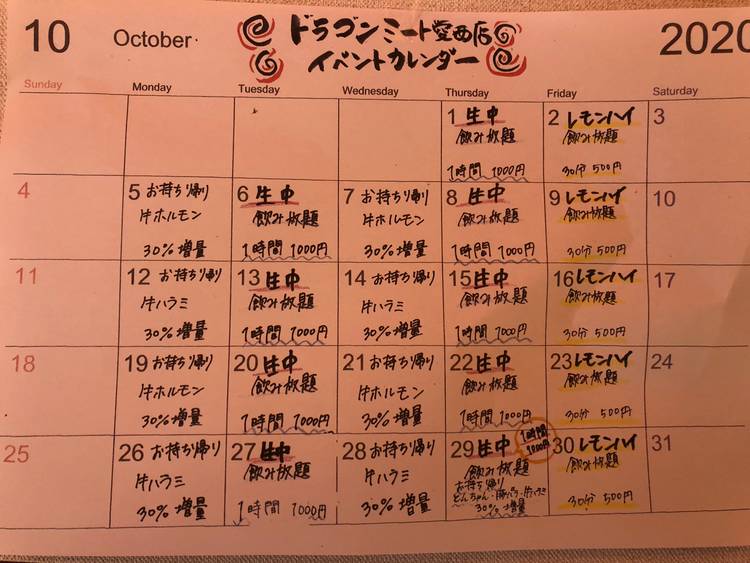 10 October
ドラゴンミート愛西店
イベントカレンダー
2020
Sunday Monday Tuesday Wednesday Thursday Friday Saturday
1 生中
飲み放題
1時間 1000円
2 レモンハイ
飲み放題
30分 500円
3
4
5 お持ち帰り
牛ホルモン
30%増量
6 生中
飲み放題
1時間 1000円
7 お持ち帰り
牛ホルモン
30%増量
8 生中
飲み放題
1時間 1000円
9 レモンハイ
飲み放題
30分 500円
10
11
12 お持ち帰り
牛ハラミ
30%増量
13 生中
飲み放題
1時間 1000円
14 お持ち帰り
牛ハラミ
30%増量
15 生中
飲み放題
1時間 1000円
16 レモンハイ
飲み放題
30分 500円
17
18
19 お持ち帰り
牛ホルモン
30%増量
20 生中
飲み放題
1時間 1000円
21 お持ち帰り
牛ホルモン
30%増量
22 生中
飲み放題
1時間 1000円
23 レモンハイ
飲み放題
30分 500円
24
25
26 お持ち帰り
牛ハラミ
30%増量
27 生中
飲み放題
1時間 1000円
28 お持ち帰り
牛ハラミ
30%増量
29 生中
1時間
1000円
飲み放題
お持ち帰り
とんちゃん・豚バラ・牛ハラミ
30%増量
30 レモンハイ
飲み放題
30分 500円
31